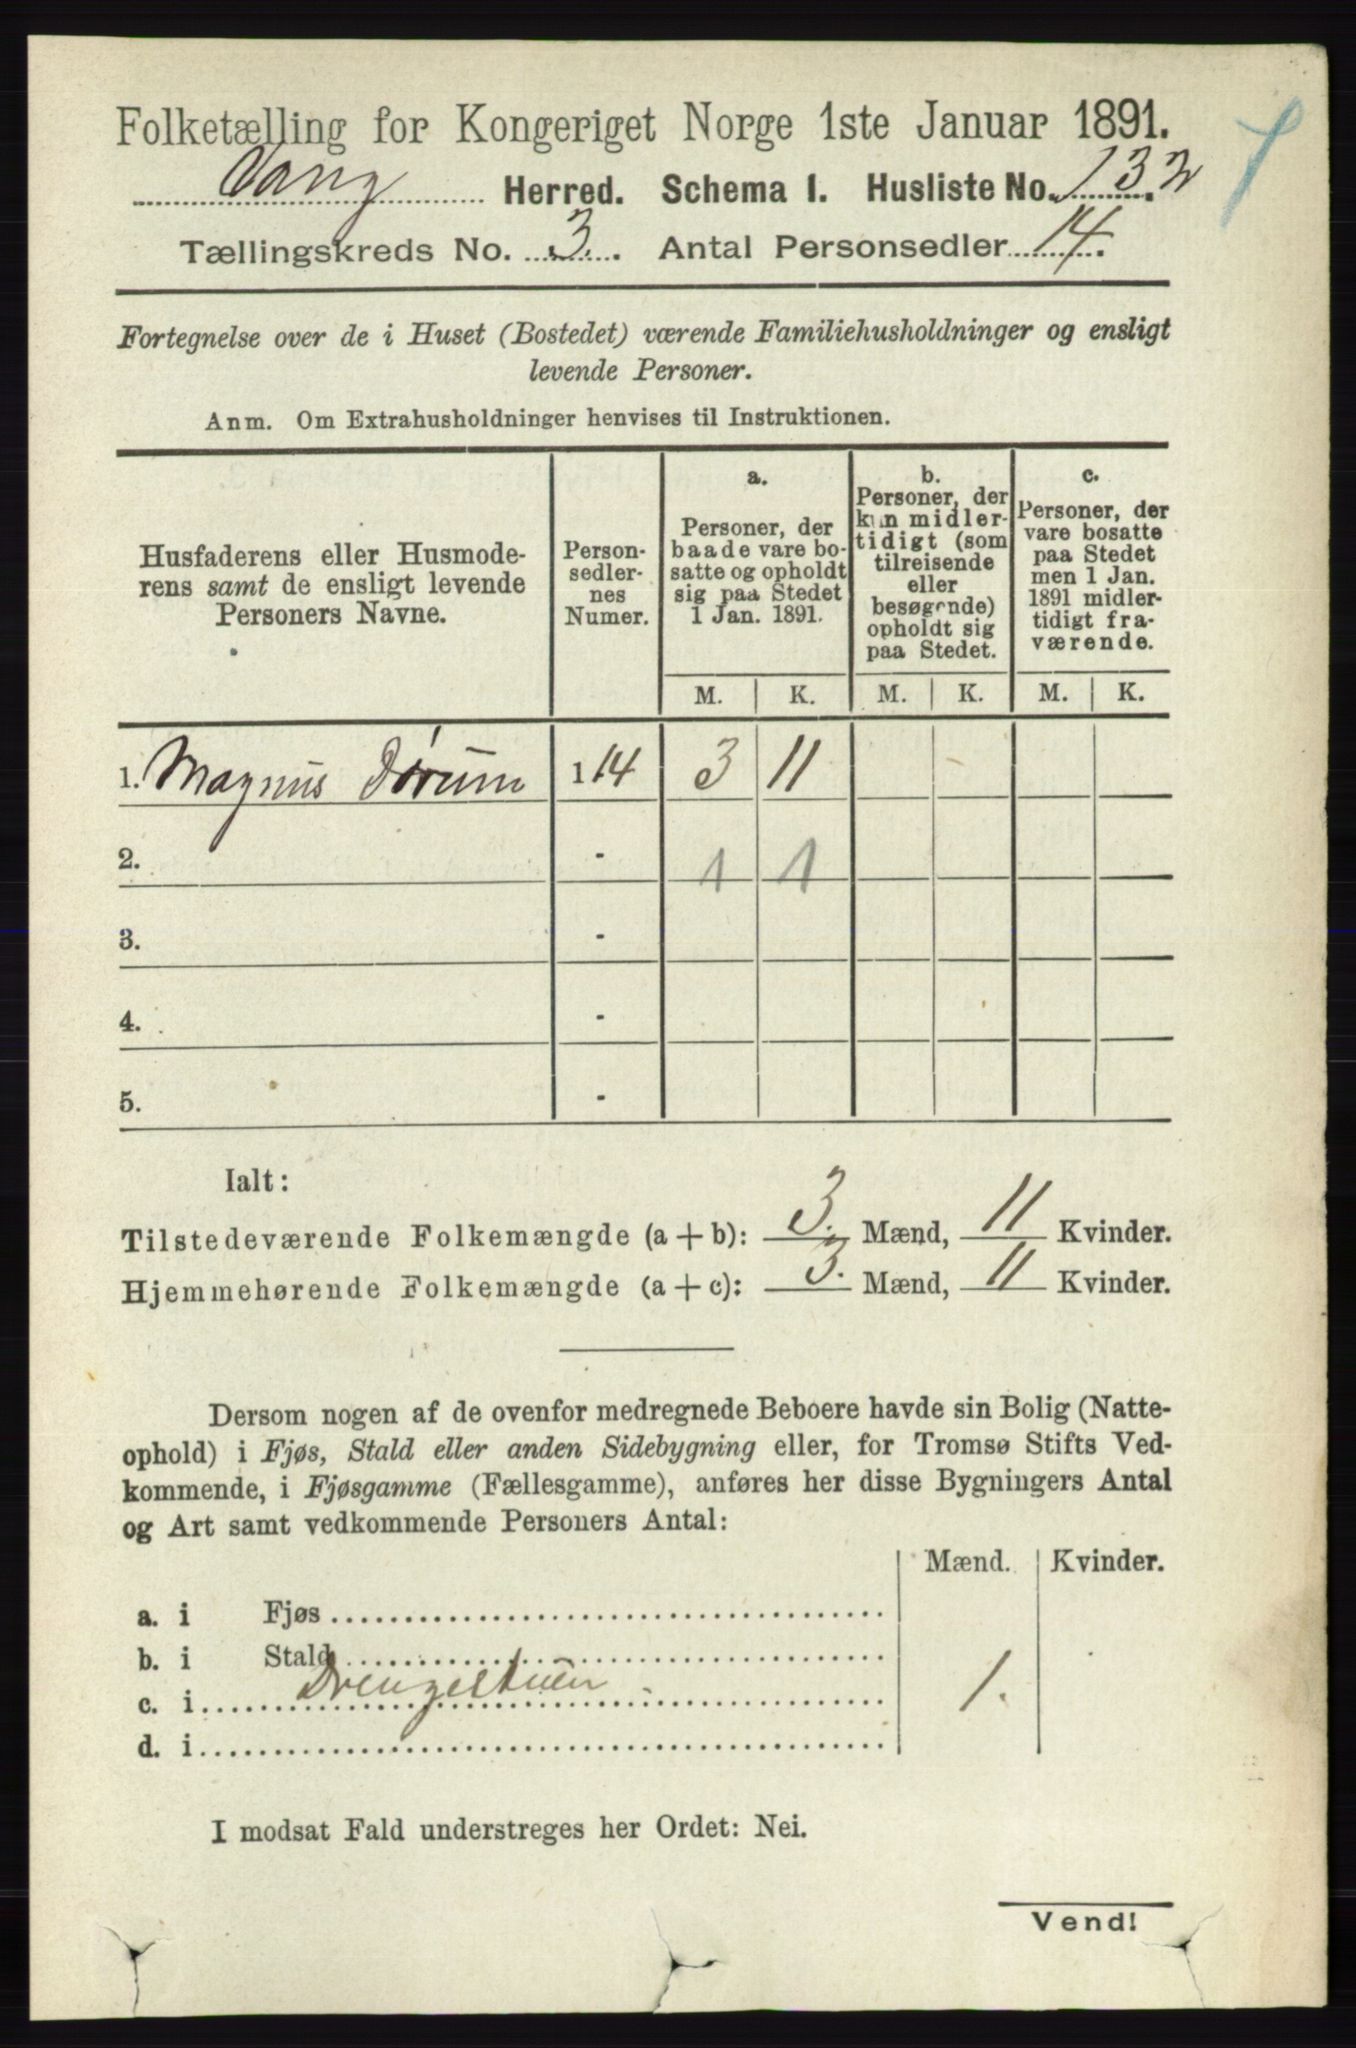 Folketælling for Kongeriget Norge 1ste Januar 1891.
Vang Herred. Schema I. Husliste No. 132
Tællingskreds No. 3. Antal Personsedler 14.
Fortegnelse over de i Huset (Bostedet) værende Familiehusholdninger og ensligt
levende Personer.
Anm. Om Extrahusholdninger henvises til Instruktionen.
Husfaderens eller Husmode-
rens samt de ensligt levende
Personers Navne.
Person-
sedler-
nes
Numer.
a.
Personer, der
baade vare bo-
satte og opholdt
sig paa Stedet
1 Jan. 1891.
b.
Personer, der
kun midler-
tidigt (som
tilreisende
eller
besøgende)
opholdt sig
paa Stedet.
c.
Personer, der
vare bosatte
paa Stedet
men 1 Jan.
1891 midler-
tidigt fra-
værende.
M. K. M. K. M. K.
1. Magnus Dørum 1 14 3 11
2. - 1 1
3. -
4. -
5. -
Ialt:
Tilstedeværende Folkemængde (a + b): 3. Mænd, 11 Kvinder.
Hjemmehørende Folkemængde (a + c): 3. Mænd, 11 Kvinder.
Dersom nogen af de ovenfor medregnede Beboere havde sin Bolig (Natte-
ophold) i Fjøs, Stald eller anden Sidebygning eller, for Tromsø Stifts Ved-
kommende, i Fjøsgamme (Fællesgamme), anføres her disse Bygningers Antal
og Art samt vedkommende Personers Antal:
Mænd. Kvinder.
a. i Fjøs
b. i Stald
c. i Drengestuen 1.
d. i
I modsat Fald understreges her Ordet: Nei.
Vend!